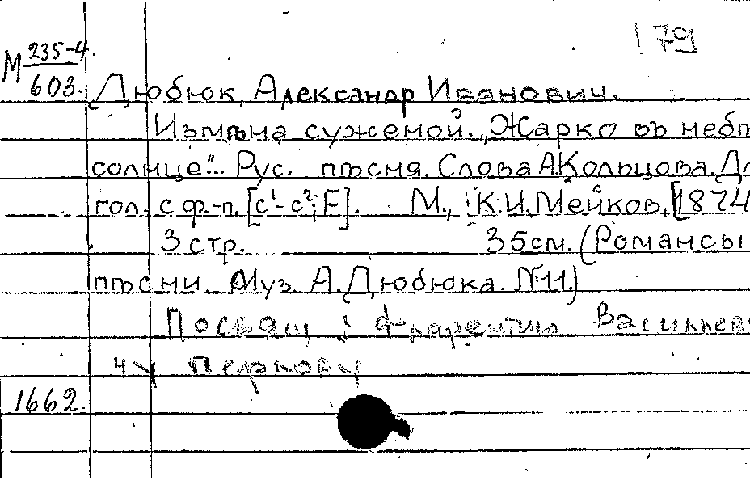 М 235-4. 179
603. Дюбюк, Александр Иванович.
Измѣна суженой. „Жарко въ небѣ
солнце“... Рус. пѣсня. Слова А.Кольцова. Дл
гол. с ф.-п. [c¹-c²; F]. М., К.И.Мейков, [1874
3 стр. 35см. (Романсы
пѣсни. Муз. А.Дюбюка. №11)
Посвящ.: Василье
чу
1662.